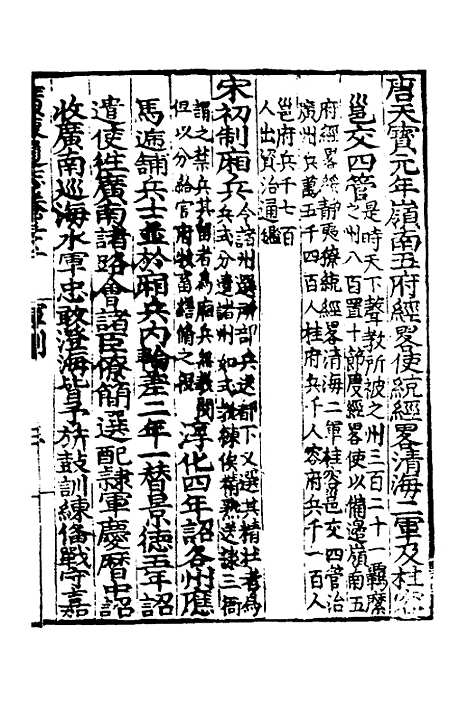 唐天寶元年嶺南五府經畧使統經畧清海二軍及桂容
邕交四管是時天下聲教所被之州三百二十一羈縻
之州八百置十節度經畧使以備邊嶺南五
府經畧綏靜夷獠統經畧清海二軍桂容邕交四管治
廣州兵萬五千四百人桂府兵千人容府兵千一百人
邕府兵千七百
人出資治通鑑
宋初制廂兵令諸州選所部兵送都下又選其精壯者為
兵式分遣諸州如式教練俟精熟送隸三衙
謂之禁兵其留者為廂兵無教閱
但以分給官府牧畜繕脩之役
淳化四年詔各州應
馬遞鋪兵士並於廂兵內輪差二年一替景德五年詔
遣使往廣南諸路會諸臣僚簡選配隸軍慶曆中詔
收廣南巡海水軍忠敢澄海皆予旂鼓訓練備戰守嘉